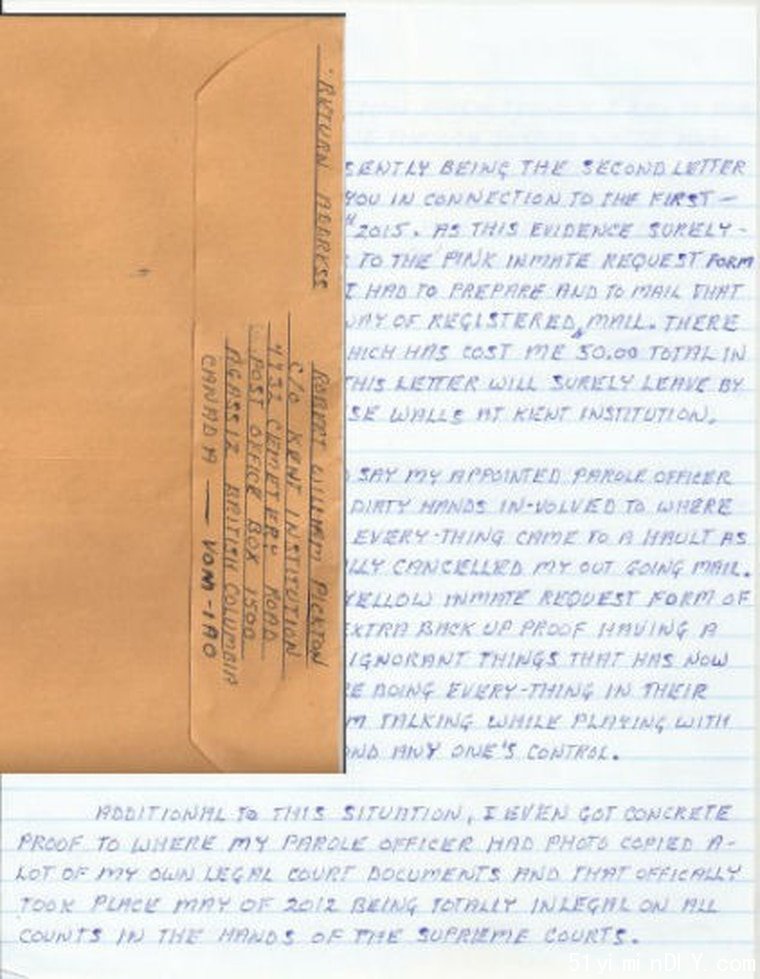 RETURN ADDRESS
ROBERT WILLIAM PICKTON
C/O KENT INSTITUTION
4732 CEMETERY ROAD
POST OFFICE BOX 1500
AGASSIZ BRITISH COLUMBIA
CANADA — VOM-1AO
SENTLY BEING THE SECOND LETTER
YOU IN CONNECTION TO THE FIRST —
2015. AS THIS EVIDENCE SURELY -
TO THE PINK INMATE REQUEST FORM
I HAD TO PREPARE AND TO MAIL THAT
WAY OF REGISTERED, MAIL. THERE
HICH HAS COST ME 50.00 TOTAL IN
THIS LETTER WILL SURELY LEAVE BY
SE WALLS AT KENT INSTITUTION.
SAY MY APPOINTED PAROLE OFFICER
DIRTY HANDS IN-VOLVED TO WHERE
EVERY-THING CAME TO A HAULT AS
LLY CANCELLED MY OUT GOING MAIL.
YELLOW INMATE REQUEST FORM OF
EXTRA BACK UP PROOF HAVING A
IGNORANT THINGS THAT HAS NOW
RE DOING EVERY-THING IN THEIR
M TALKING WHILE PLAYING WITH
OND ANY ONE'S CONTROL.
ADDITIONAL TO THIS SITUATION, I EVEN GOT CONCRETE
PROOF TO WHERE MY PAROLE OFFICER HAD PHOTO COPIED A-
LOT OF MY OWN LEGAL COURT DOCUMENTS AND THAT OFFICALLY
TOOK PLACE MAY OF 2012 BEING TOTALLY INLEGAL ON ALL
COUNTS IN THE HANDS OF THE SUPREME COURTS.
51yiminDIY.com